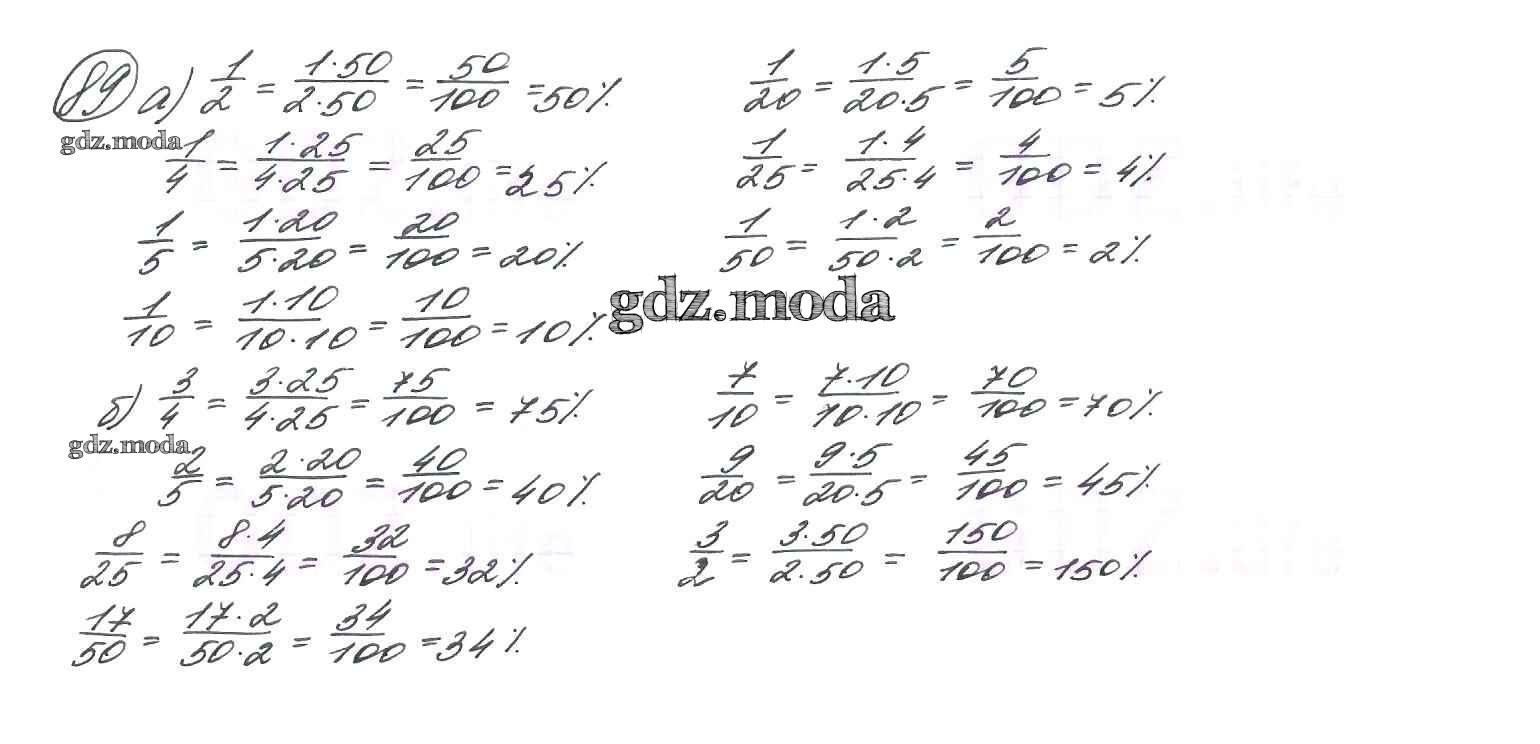 89 а) 1/2 = 1·50/2·50 = 50/100 = 50%
1/20 = 1·5/20·5 = 5/100 = 5%
gdz.moda
1/4 = 1·25/4·25 = 25/100 = 25%
1/25 = 1·4/25·4 = 4/100 = 4%
1/5 = 1·20/5·20 = 20/100 = 20%
1/50 = 1·2/50·2 = 2/100 = 2%
gdz.moda
1/10 = 1·10/10·10 = 10/100 = 10%
б) 3/4 = 3·25/4·25 = 75/100 = 75%
7/10 = 7·10/10·10 = 70/100 = 70%
gdz.moda
2/5 = 2·20/5·20 = 40/100 = 40%
9/20 = 9·5/20·5 = 45/100 = 45%
8/25 = 8·4/25·4 = 32/100 = 32%
3/2 = 3·50/2·50 = 150/100 = 150%
17/50 = 17·2/50·2 = 34/100 = 34%